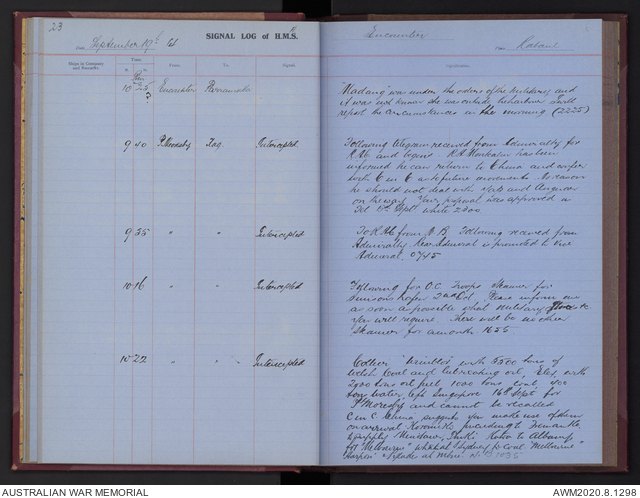 23
September 19th 14
SIGNAL LOG of H.M.S.
Encounter
Rabaul
Date
Place
Time
From
To
Signal
10 25 Encounter Parramatta
"Madang" was under the orders of the Military and
it was not known she was outside the harbour I will
report the circumstances in the morning (2225)
9 40 P. Moresby Flag Intercepted
Following telegram received from Admiralty for
R.A.C and begins R.A. has been
informed he can return to China and confer
with C in C as to future movements
he should not deal with Yap and Angaur
on the way Your proposal was approved in
Tel 18th Sept white 2300
9 55 " " Intercepted
To R.A.C from N.B. Following received from
Admiralty Rear Admiral is promoted to Vice
Admiral 0745
10 16 " " Intercepted
Following for O.C. Troops Steamer for
Simsonshafen 2nd Oct. Please inform me
as soon as possible what military stores etc
you will require. There will be no other
steamer for a month 1655
10 22 " " Intercepted
Collier with 5500 tons of
Welsh Coal and lubricating oil, with
2000 tons oil fuel 1000 tons coal 400
tons water left Singapore 16th Sept for
P Moresby and cannot be recalled
C in C China suggests you make use of them
on arrival Koromiko proceeding to Fremantle
to Albany
for "Melbourne" Sydney to coal "Melbourne"
1035
AUSTRALIAN WAR MEMORIAL
AWM2020.8.1298